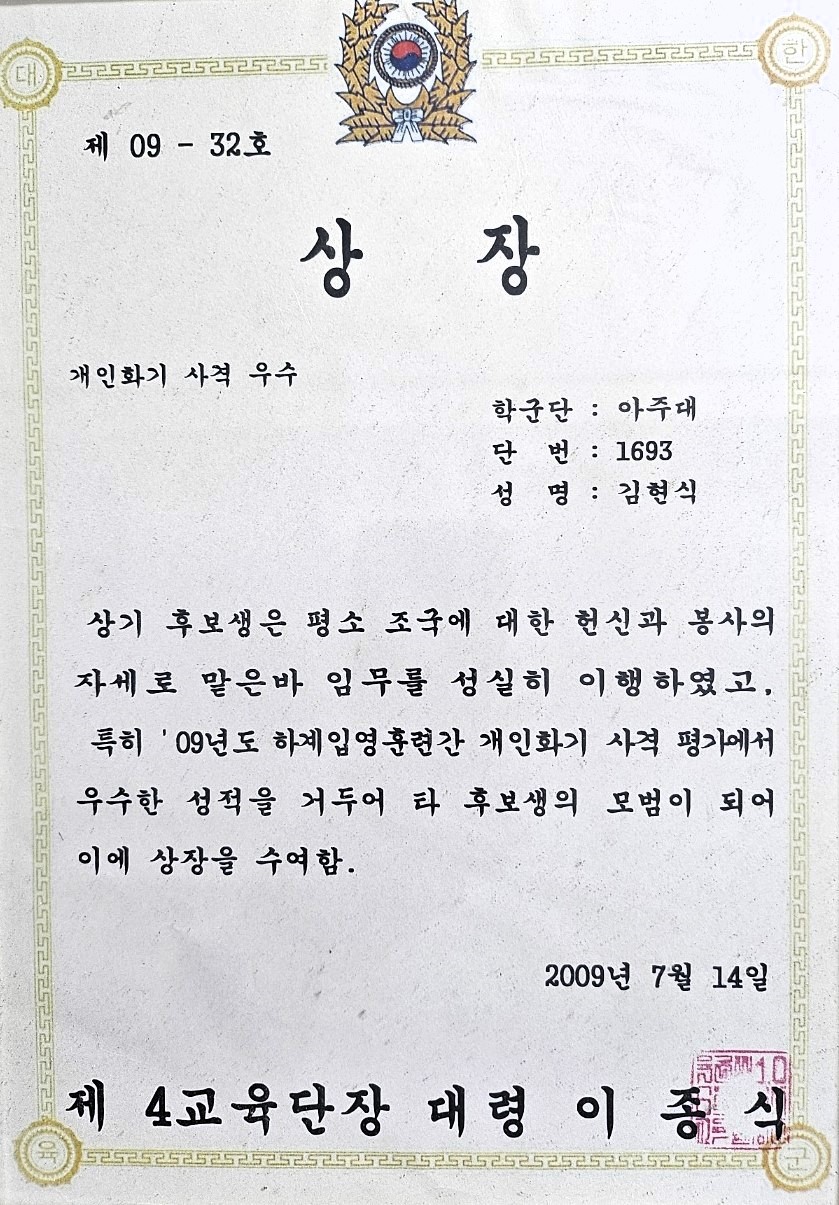 대 한
제 09 - 32호
상 장
개인화기 사격 우수
학군단 : 아주대
단 번 : 1693
성 명 : 김현식
상기 후보생은 평소 조국에 대한 헌신과 봉사의
자세로 맡은바 임무를 성실히 이행하였고,
특히 '09년도 하계입영훈련간 개인화기 사격 평가에서
우수한 성적을 거두어 타 후보생의 모범이 되어
이에 상장을 수여함.
2009년 7월 14일
제 4교육단장 대령 이 종 식
육 군